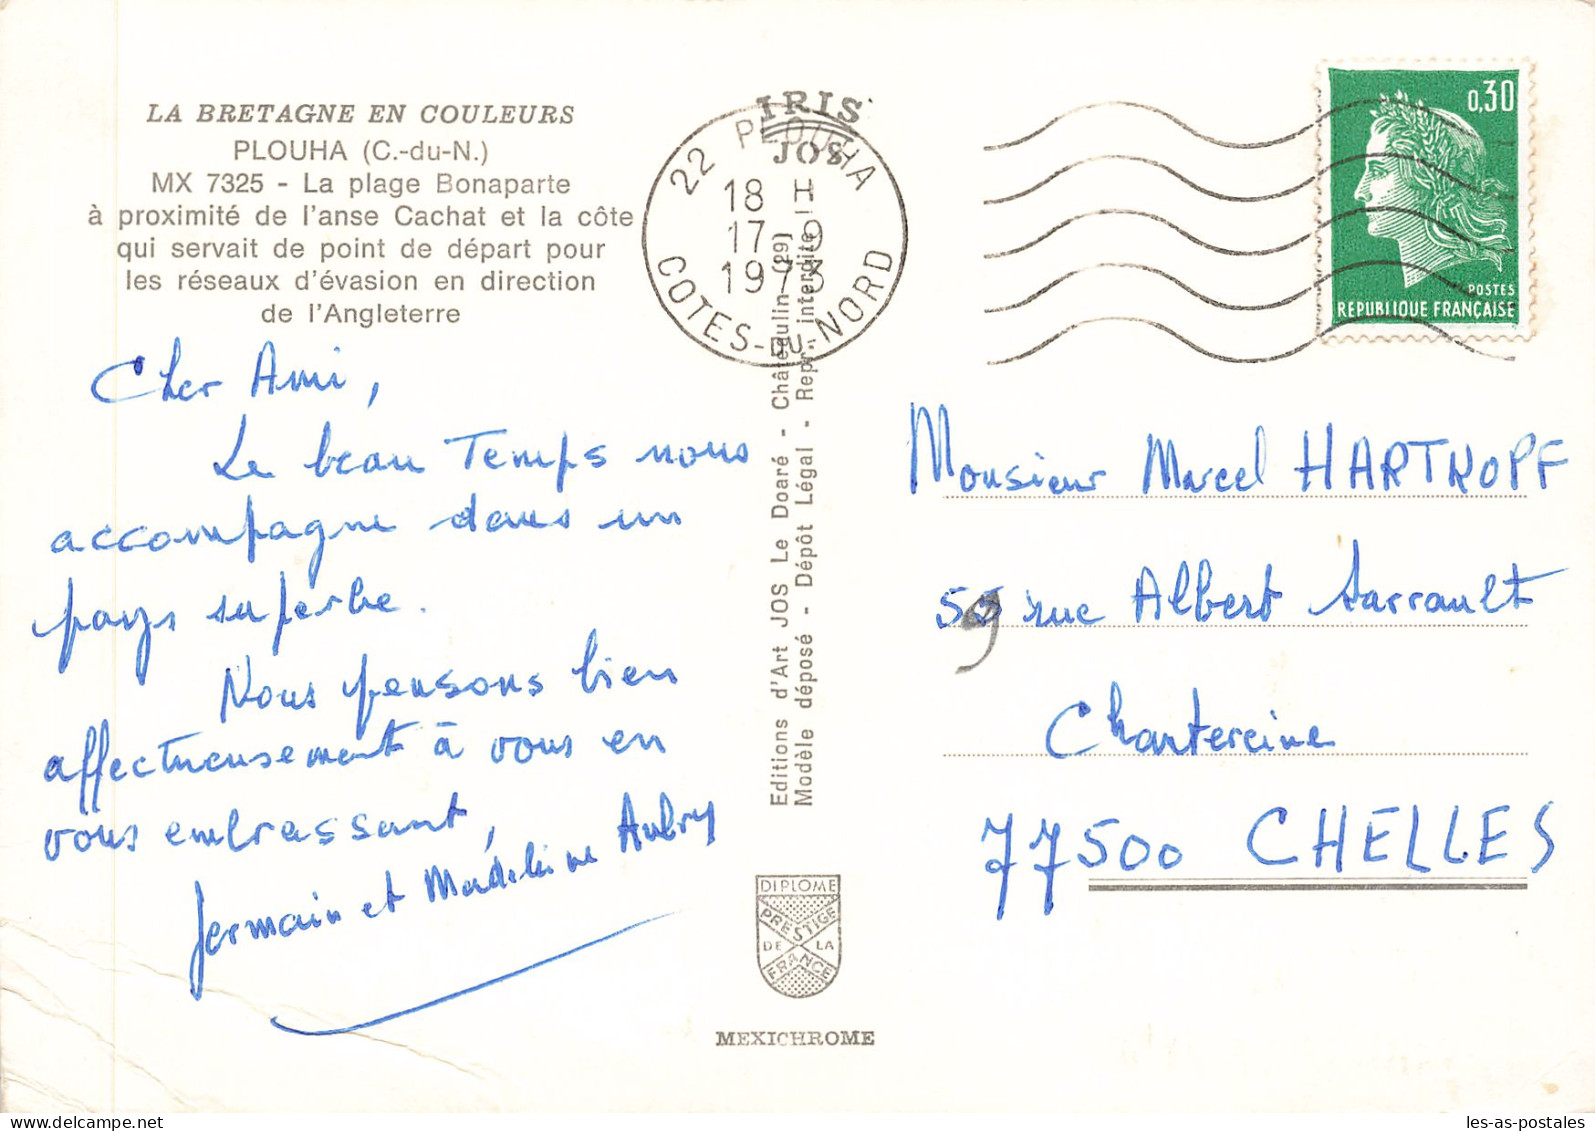 LA BRETAGNE EN COULEURS
PLOUHA (C.-du-N.)
MX 7325 - La plage Bonaparte
à proximité de l'anse Cachat et la côte
qui servait de point de départ pour
les réseaux d'évasion en direction
de l'Angleterre
Cher Ami,
Le beau Temps nous
accompagne dans un
pays superbe.
Nous pensons bien
affectueusement à vous en
vous embrassant,
Germain et Madeleine Aubry
IRIS
JOS
22 PLOUHA
18 H
17-9
1973
COTES-DU-NORD
Editions d'Art JOS Le Doaré - Châteaulin (29)
Modèle déposé - Dépôt Légal - Repr. interdite
DIPLOME
PRESTIGE
DE LA
FRANCE
MEXICHROME
0,30
POSTES
REPUBLIQUE FRANÇAISE
Monsieur Marcel HARTKOPF
59 rue Albert Sarrault
Chantereine
77500 CHELLES
les-as-postales